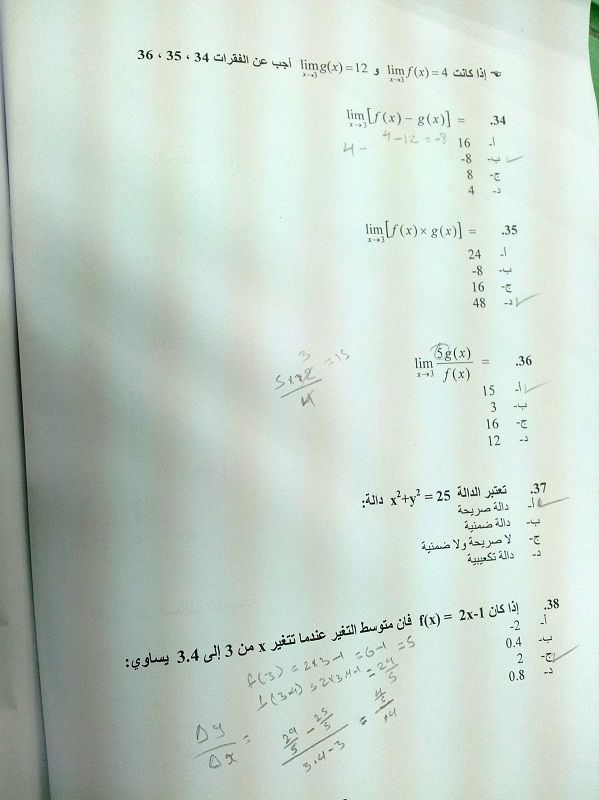 ☜ إذا كانت lim f(x) = 4 و lim g(x) = 12 أجب عن الفقرات 34 ، 35 ، 36
x→3 x→3
34. lim [f(x) − g(x)] =
x→3
4 − 12 = -8
4 -
أ- 16
ب- -8 ✓
ج- 8
د- 4
35. lim [f(x) × g(x)] =
x→3
أ- 24
ب- -8
ج- 16
د- 48 ✓
36. lim 5g(x) / f(x) =
x→3
3
5×12 / 4 = 15
أ- 15 ✓
ب- 3
ج- 16
د- 12
37. تعتبر الدالة x²+y² = 25 دالة:
أ- دالة صريحة ✓
ب- دالة ضمنية
ج- لا صريحة ولا ضمنية
د- دالة تكعيبية
38. إذا كان f(x) = 2x-1 فان متوسط التغير عندما تتغير x من 3 إلى 3.4 يساوي:
أ- -2
ب- 0.4
ج- 2 ✓
د- 0.8
f(3) = 2×3-1 = 6-1 = 5
f(3.4) = 2×3.4-1 = 29/5
Δy/Δx = (29/5 - 25/5) / (3.4-3) = (4/5) / .4